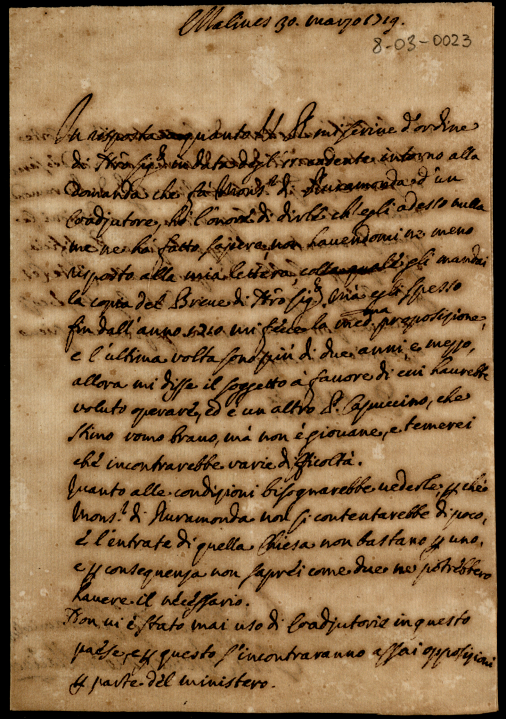 Malines 30. marzo 1719.
8-03-0023
In risposta a quanto V.S. mi scrive d'ordine
di N'rõ Sig.re in data degli 11. cadente intorno alla
domanda che fà Mons.r di Ruramonda d'un
Coadjutore, hò l'onore di dirle ch'egli adesso nulla
me ne hà fatto sapere, non havendomi ne meno
risposto alla mia lettera, colla quale gli mandai
la copia del Breve di N'rõ Sig.re mà egli spesso
fin dall'anno 1710 mi fece la med.ma proposizione,
e l'ultima volta sono più di due anni, e mezzo,
allora mi disse il soggetto à favore di cui haurebbe
voluto operare, ed è un altro P. Capuccino, che
stimo uomo bravo, mà non è giovane, e temerei
che incontrarebbe varie difficoltà.
Quanto alle condizioni bisognarebbe vederle, p che
Mons.r di Ruramonda non si contentarebbe di poco,
è l'entrate di quella Chiesa non bastano p uno,
e p consequenza non saprei come due ne potrebbero
havere il necessario.
Non vi è stato mai uso di Coadjutorie in questo
paese, e p questo s'incontraranno assai opposizioni
p parte del ministero.